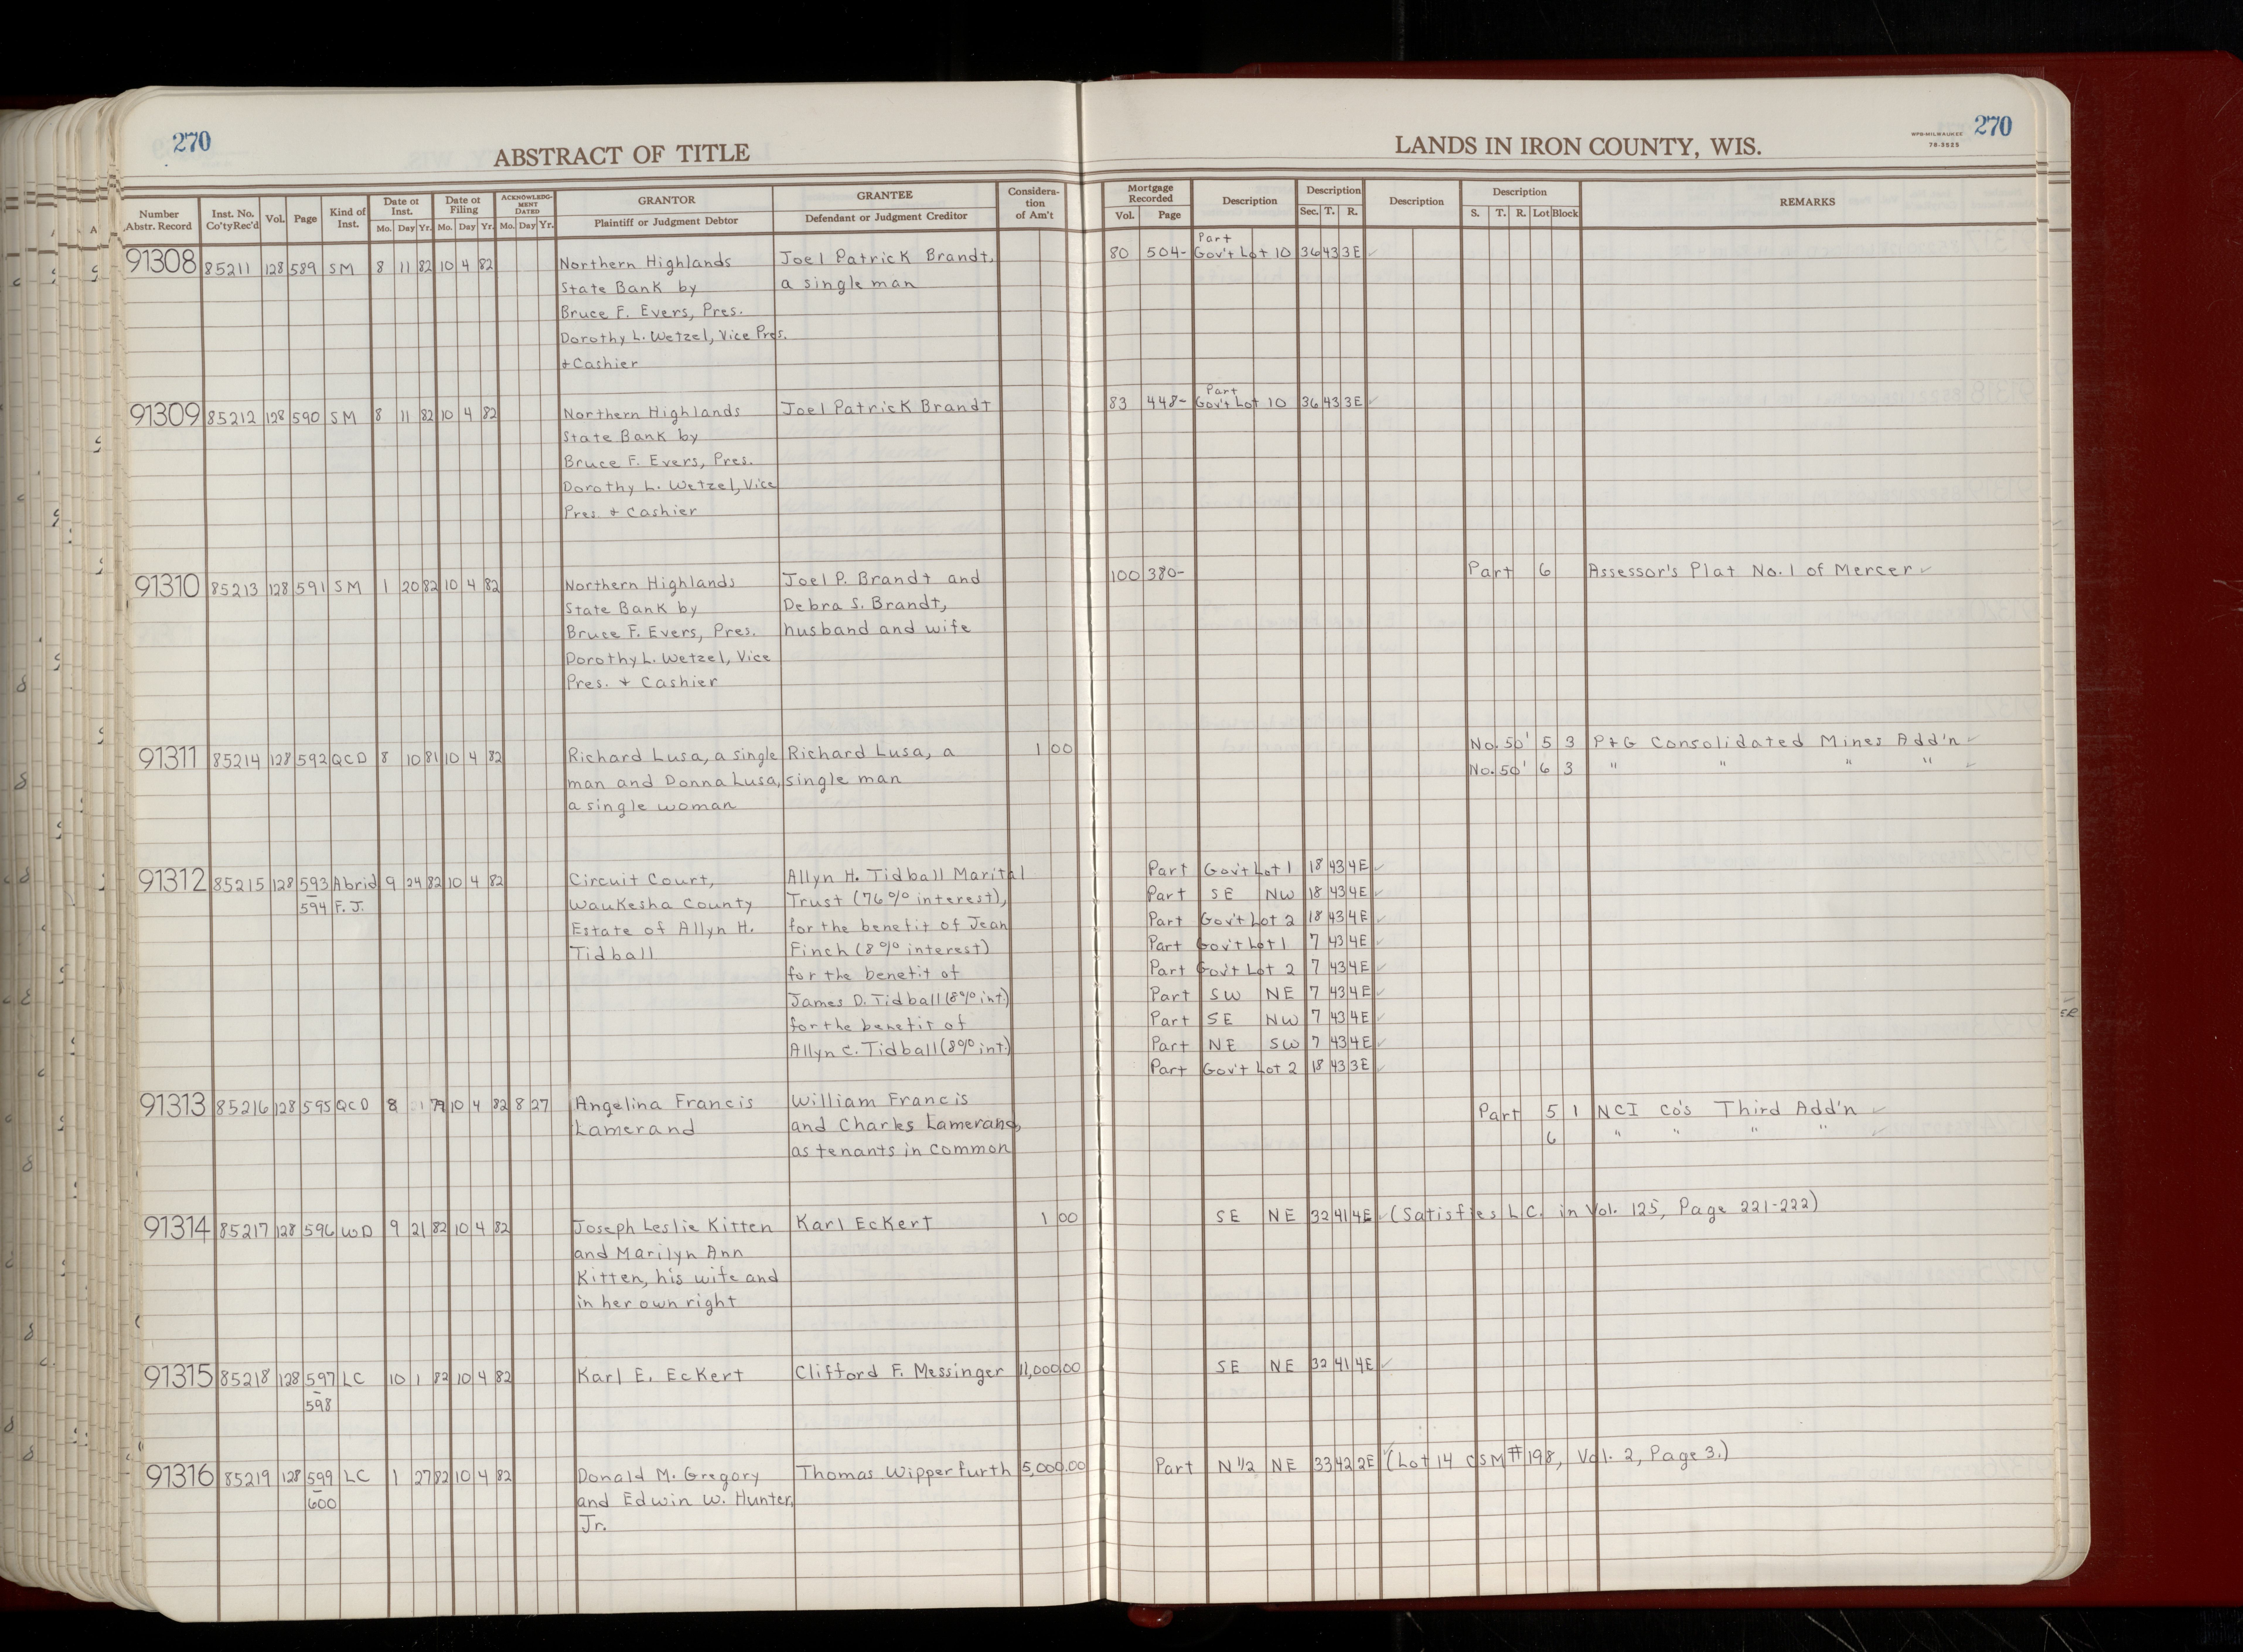 270
ABSTRACT OF TITLE
LANDS IN IRON COUNTY, WIS.
WPB-MILWAUKEE
78-3525
270
Number Abstr. Record
Inst. No. Co'ty Rec'd
Vol.
Page
Kind of Inst.
Date of Inst.
Mo. Day Yr.
Date of Filing
Mo. Day Yr.
ACKNOWLEDGMENT DATED
Mo. Day Yr.
GRANTOR
Plaintiff or Judgment Debtor
GRANTEE
Defendant or Judgment Creditor
Consideration of Am't
Mortgage Recorded
Vol. Page
Description
Description
Sec. T. R.
Description
Description
S. T. R. Lot Block
REMARKS
91308 85211 128 589 SM 8 11 82 10 4 82 Northern Highlands Joel Patrick Brandt, 80 504- Part Gov't Lot 10 36 43 3E
State Bank by a single man
Bruce F. Evers, Pres.
Dorothy L. Wetzel, Vice Pres.
+ Cashier
91309 85212 128 590 SM 8 11 82 10 4 82 Northern Highlands Joel Patrick Brandt 83 448- Part Gov't Lot 10 36 43 3E
State Bank by
Bruce F. Evers, Pres.
Dorothy L. Wetzel, Vice
Pres + Cashier
91310 85213 128 591 SM 1 20 82 10 4 82 Northern Highlands Joel P. Brandt and 100 380- Part 6 Assessor's Plat No. 1 of Mercer
State Bank by Debra S. Brandt,
Bruce F. Evers, Pres. husband and wife
Dorothy L. Wetzel, Vice
Pres. + Cashier
91311 85214 128 592 QCD 8 10 81 10 4 82 Richard Lusa, a single Richard Lusa, a 1 00 No. 50' 5 3 P+G Consolidated Mines Add'n
man and Donna Lusa, single man No. 50' 6 3 " " " "
a single woman
91312 85215 128 593 Abrid 9 24 82 10 4 82 Circuit Court, Allyn H. Tidball Marital Part Gov't Lot 1 18 43 4E
– 594 F. J. Waukesha County Trust (76% interest), Part SE NW 18 43 4E
Estate of Allyn H. for the benefit of Jean Part Gov't Lot 2 18 43 4E
Tidball Finch (8% interest) Part Gov't Lot 1 7 43 4E
for the benefit of Part Gov't Lot 2 7 43 4E
James D. Tidball (8% int.) Part SW NE 7 43 4E
for the benefit of Part SE NW 7 43 4E
Allyn C. Tidball (8% int.) Part NE SW 7 43 4E
Part Gov't Lot 2 18 43 3E
91313 85216 128 595 QCD 8 79 10 4 82 8 27 Angelina Francis William Francis Part 5 1 NCI Co's Third Add'n
Lamerand and Charles Lamerand, 6 " " " "
as tenants in common
91314 85217 128 596 WD 9 21 82 10 4 82 Joseph Leslie Kitten Karl Eckert 1 00 SE NE 32 41 4E (Satisfies L.C. in Vol. 125, Page 221-222)
and Marilyn Ann
Kitten, his wife and
in her own right
91315 85218 128 597 LC 10 1 82 10 4 82 Karl E. Eckert Clifford F. Messinger 11,000.00 SE NE 32 41 4E
– 598
91316 85219 128 599 LC 1 27 82 10 4 82 Donald M. Gregory Thomas Wipperfurth 5,000.00 Part N 1/2 NE 33 42 2E (Lot 14 CSM #198, Vol. 2, Page 3.)
– 600 and Edwin W. Hunter,
Jr.